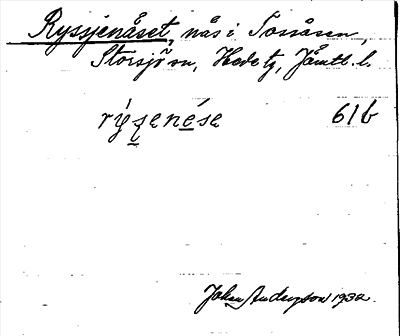 Rysjenåset, nås i Tossåsen,
Storsjö sn, Hede tg, Jämtl. l.
rýʂenése 61b
Johan Anderson 1932